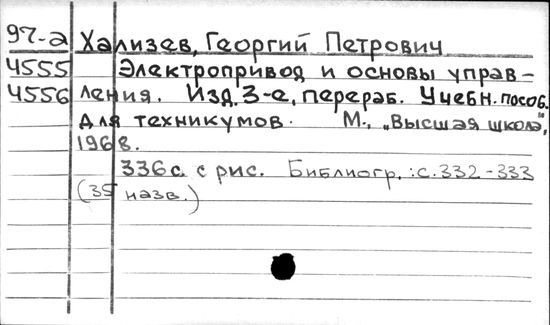 97-а Хализев, Георгий Петрович
4555 Электропривод и основы управ-
4556 ления. Изд. 3-е, перераб. Учебн. пособ.
для техникумов. М., „Высшая школа",
1968.
336 с. с рис. Библиогр.: с. 332-333
(35 назв.)